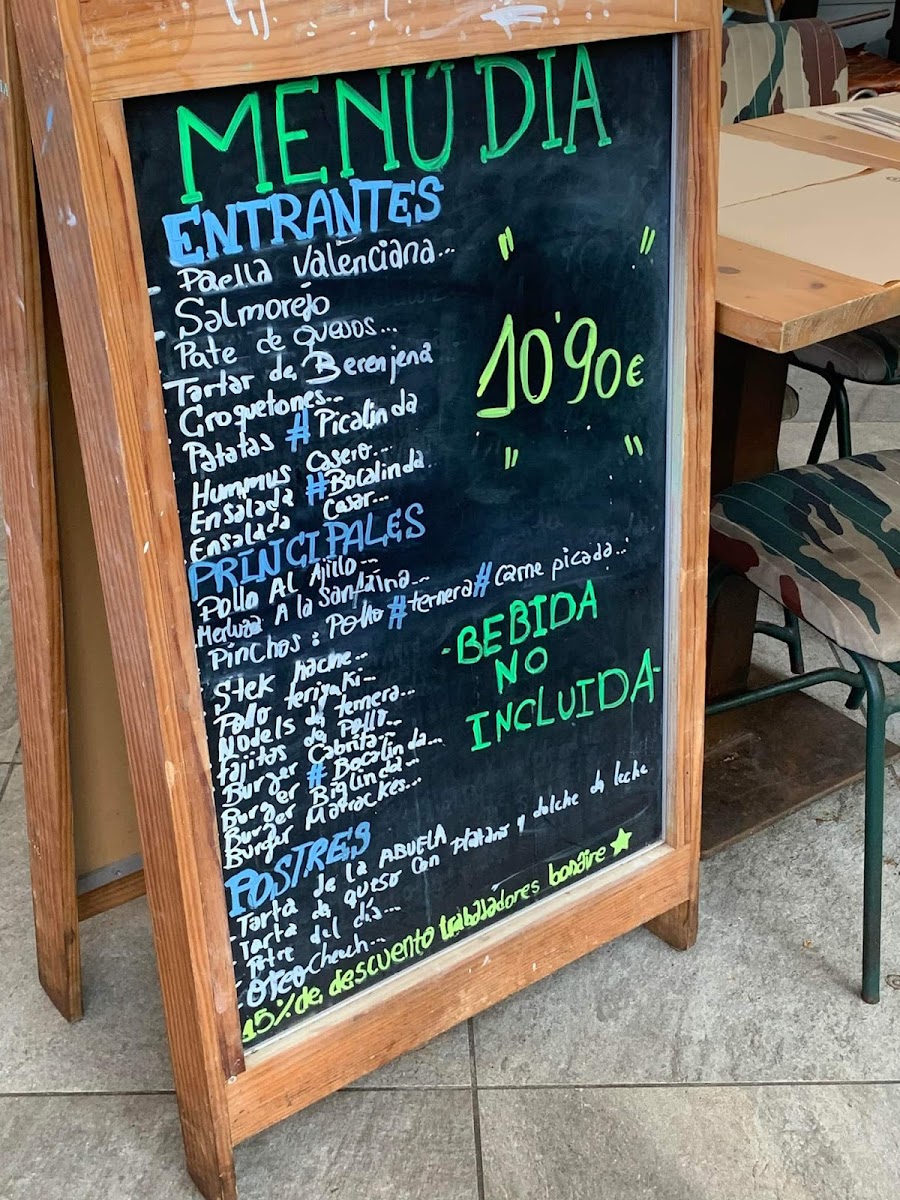 MENÚ DIA
ENTRANTES
- Paella Valenciana...
- Salmorejo
- Pate de Quesos...
- Tartar de Berenjena
- Croquetones...
- Patatas # Picalinda
- Hummus Casero...
- Ensalada # Bocalinda
- Ensalada Cesar...
" "
10'90€
" "
PRINCIPALES
- Pollo Al Ajillo...
- Merluza A la Santaina...
- Pinchos: Pollo # ternera # Carne picada...
- Stek hache...
- Pollo teriyaki...
- Nodels de ternera...
- Fajitas de Pollo...
- Burger Cabrita...
- Burger # Bocalinda...
- Burger Biglinda...
- Burger Matrackes...
-BEBIDA
NO
INCLUIDA-
POSTRES
- Tarta de la ABUELA
- Tarta de queso con Platano y dulche de leche
- Potre del día...
- Oreo Cheach...
15% de descuento trabajadores bonaire ★